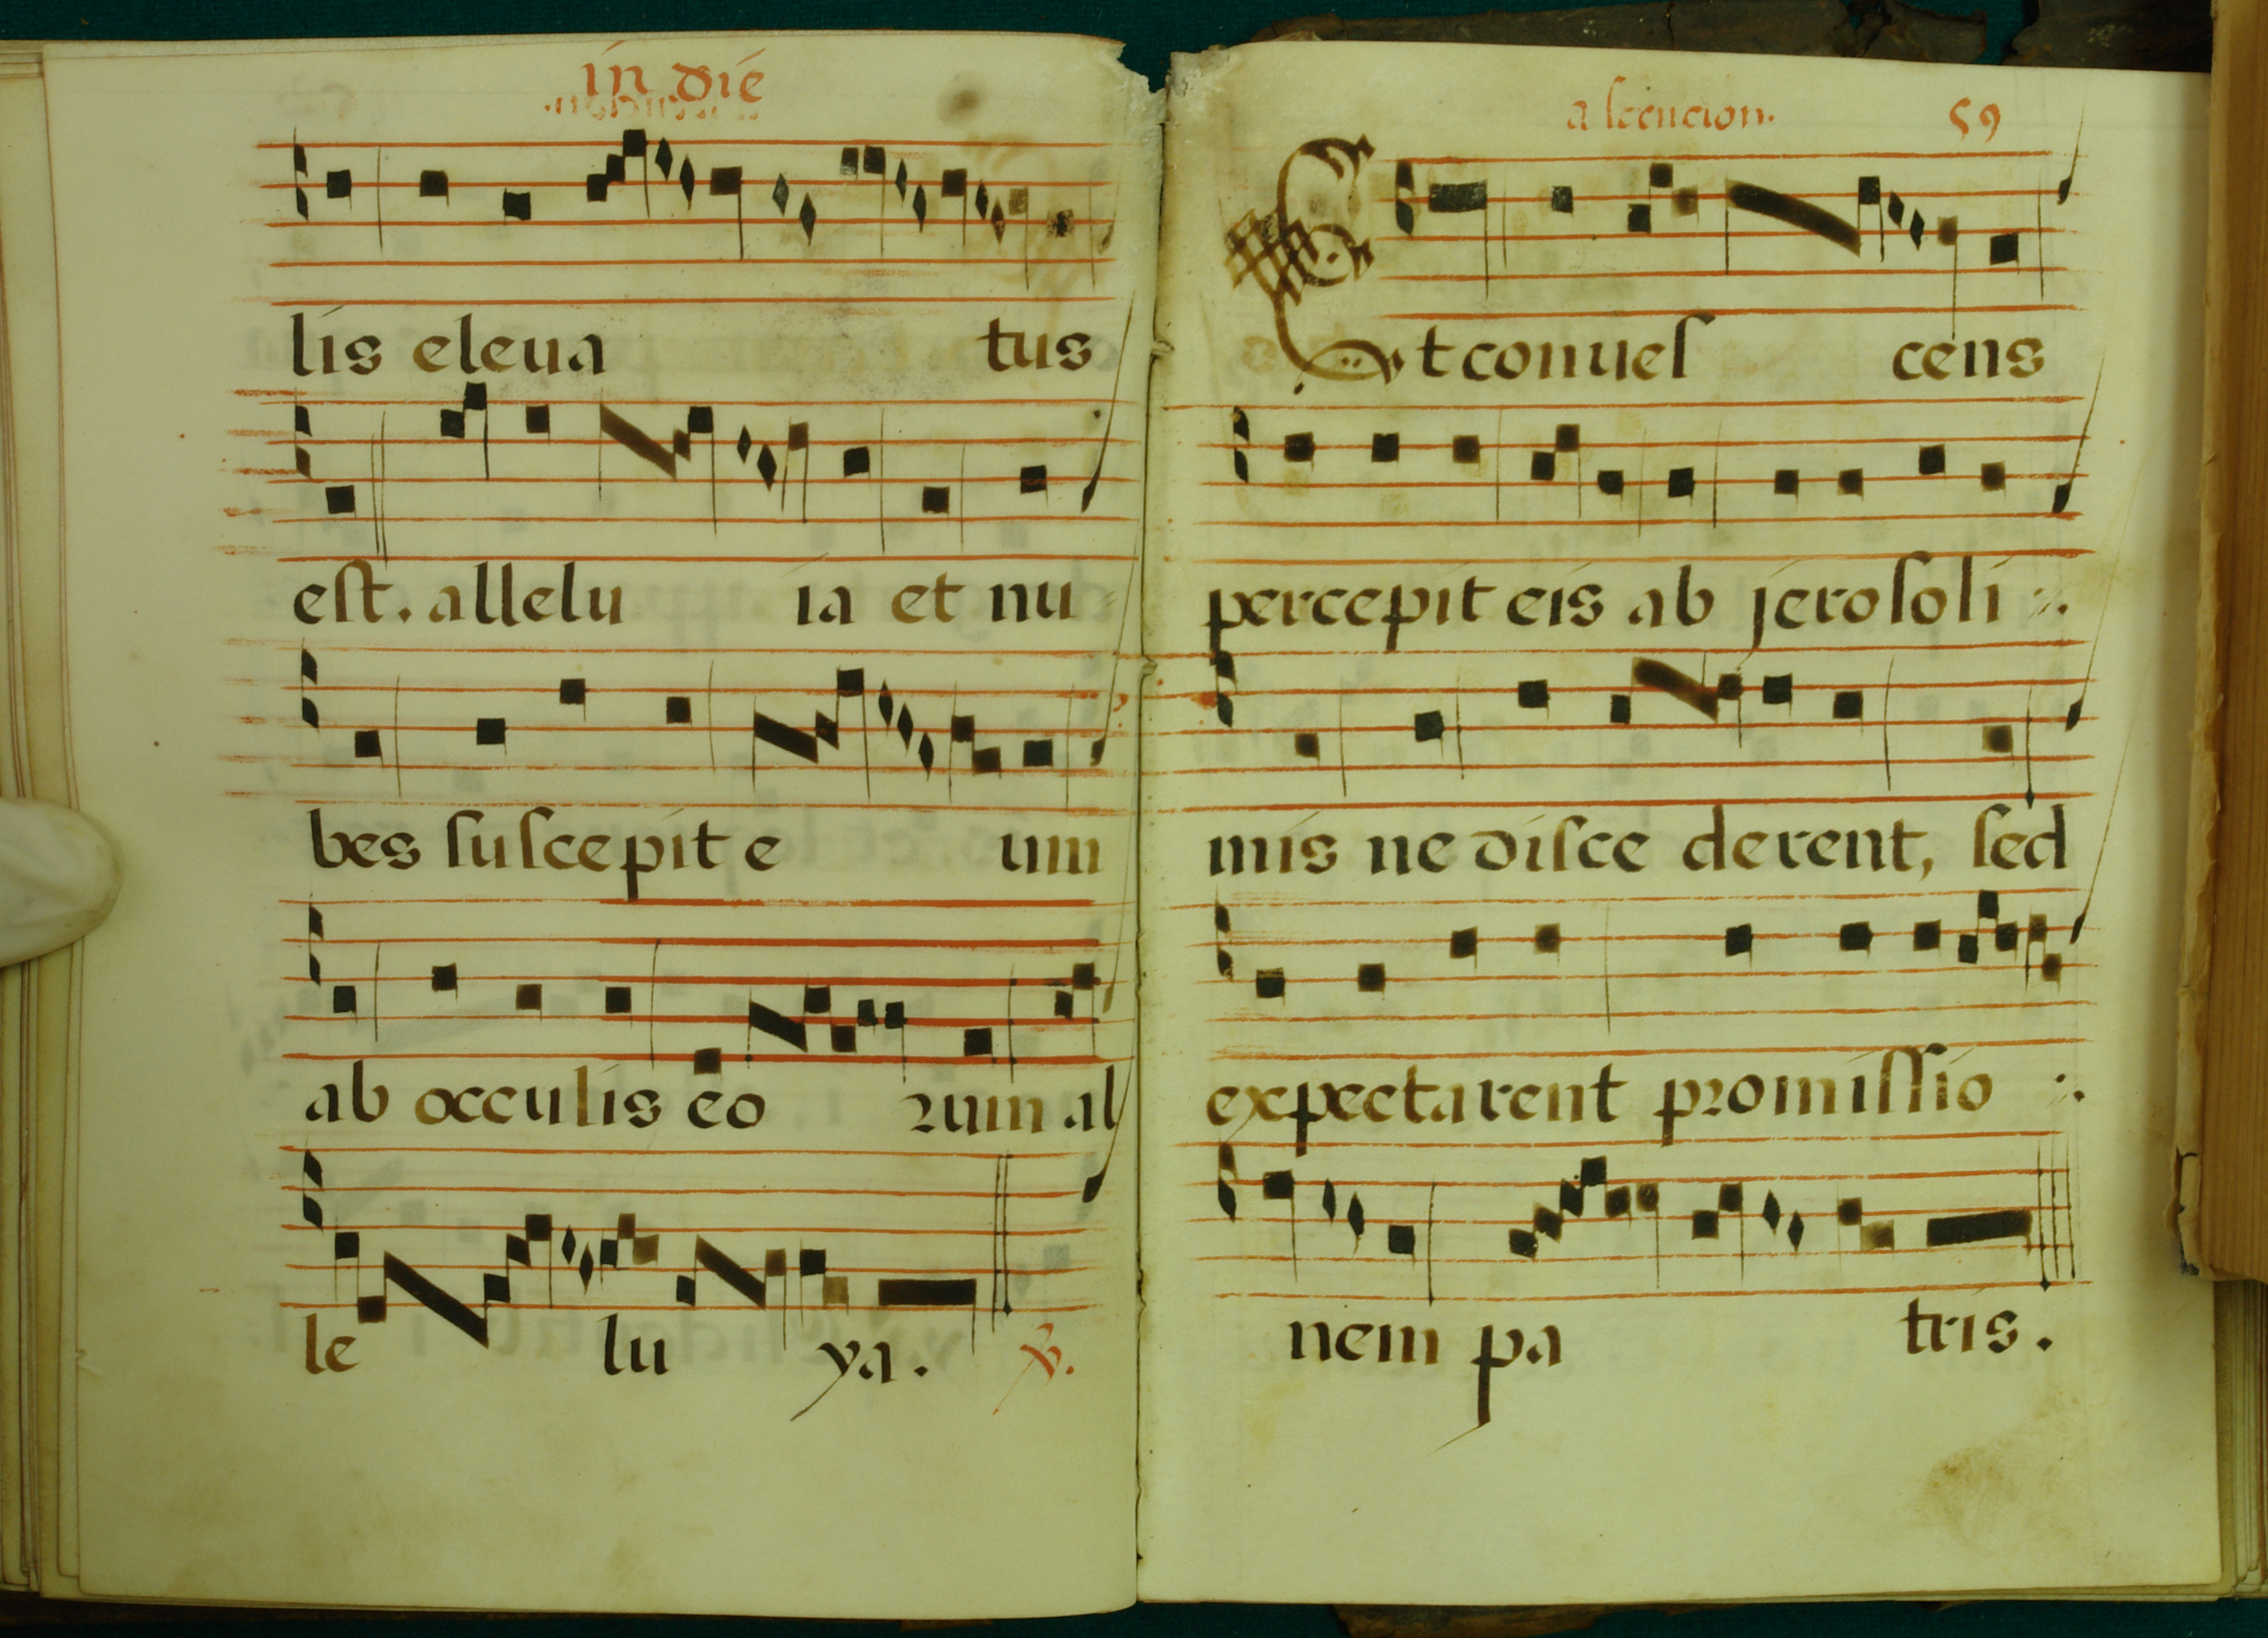 in die
lis eleua tus
eſt. allelu ia et nu
bes ſuſcepit e um
ab occulis eo rum al
le lu ya. ℣.
aſcencion. 59
Et conueſ cens
percepit eis ab jeroſoli
mis ne diſce derent, ſed
expectarent promiſſio
nem pa tris.